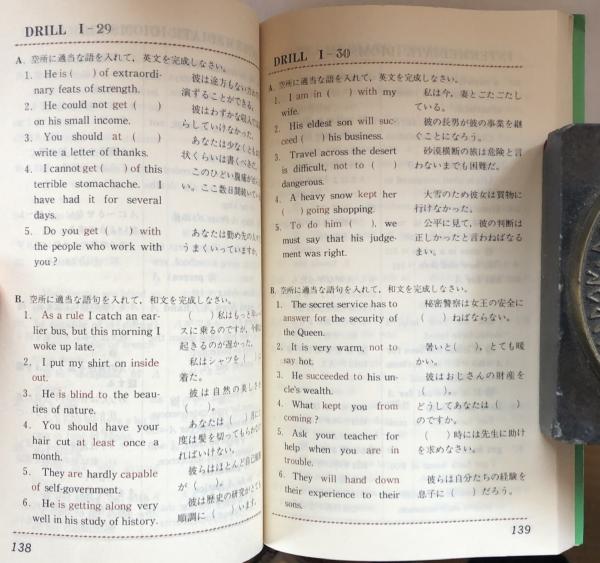 DRILL I-29
A. 空所に適当な語を入れて,英文を完成しなさい。
1. He is ( ) of extraordi-
nary feats of strength.
彼は途方もない
演ずることができる。
2. He could not get ( )
on his small income.
彼はわずかな収入では
らしていけなかった。
3. You should at ( )
write a letter of thanks.
あなたは少なくとも
状くらいは書くべきだ。
4. I cannot get ( ) of this
terrible stomachache. I
have had it for several
days.
このひどい腹痛が
い。ここ数日間続いて
5. Do you get ( ) with
the people who work with
you ?
あなたは勤め先の
うまくいっていますか。
B. 空所に適当な語句を入れて,和文を完成しなさい。
1. As a rule I catch an ear-
lier bus, but this morning I
woke up late.
( )私はもっと
スに乗るのですが,
起きるのが遅かった。
2. I put my shirt on inside
out.
私はシャツを( )
着た。
3. He is blind to the beau-
ties of nature.
彼は自然の美しさ
( )。
4. You should have your
hair cut at least once a
month.
あなたは( )月に
度は髪を切ってもらわ
ればいけない。
5. They are hardly capable
of self-government.
彼らはほとんど自己
が( )。
6. He is getting along very
well in his study of history.
彼は歴史の研究が
順調に( )います。
138
DRILL I-30
A. 空所に適当な語を入れて,英文を完成しなさい。
1. I am in ( ) with my
wife.
私は今,妻とごたごたし
ている。
2. His eldest son will suc-
ceed ( ) his business.
彼の長男が彼の事業を継
ぐことになろう。
3. Travel across the desert
is difficult, not to ( )
dangerous.
砂漠横断の旅は危険と言
わないまでも困難だ。
4. A heavy snow kept her
( ) going shopping.
大雪のため彼女は買物に
行けなかった。
5. To do him ( ), we
must say that his judge-
ment was right.
公平に見て,彼の判断は
正しかったと言わねばなる
まい。
B. 空所に適当な語句を入れて,和文を完成しなさい。
1. The secret service has to
answer for the security of
the Queen.
秘密警察は女王の安全に
( )ねばならない。
2. It is very warm, not to
say hot.
暑いと( )。とても暖
かい。
3. He succeeded to his un-
cle's wealth.
彼はおじさんの財産を
( )。
4. What kept you from
coming ?
どうしてあなたは( )
のですか。
5. Ask your teacher for
help when you are in
trouble.
( )時には先生に助け
を求めなさい。
6. They will hand down
their experience to their
sons.
彼らは自分たちの経験を
息子に( )だろう。
139